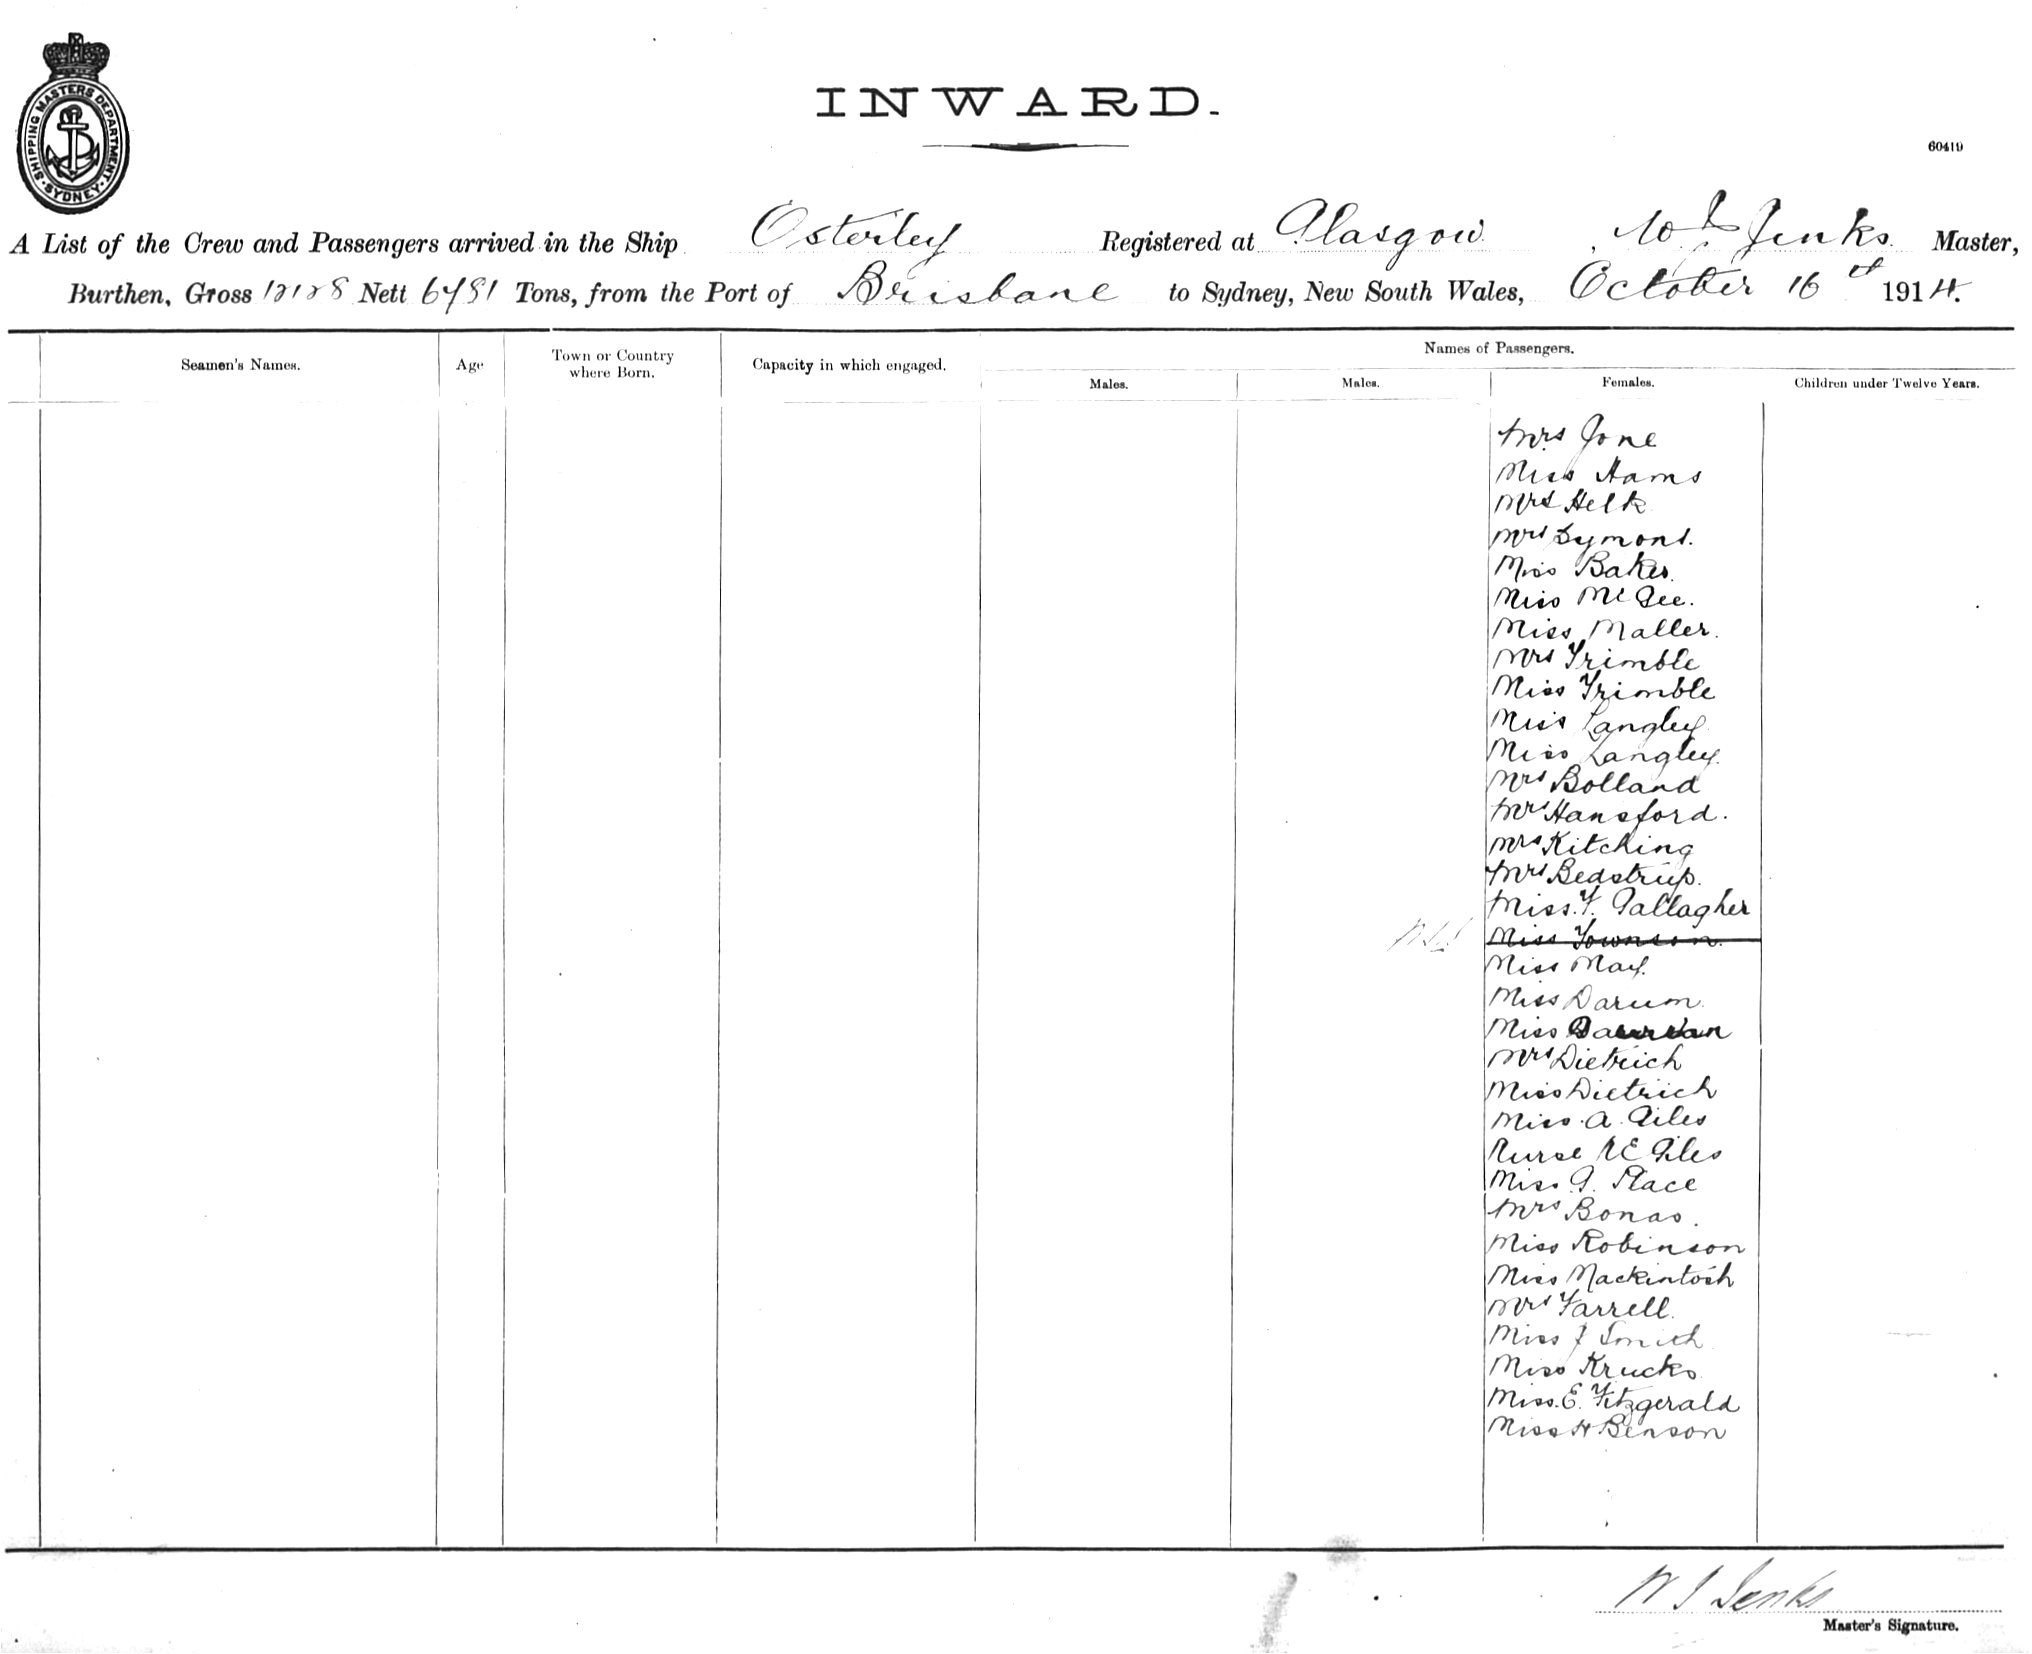 SHIPPING MASTERS DEPARTMENT · SYDNEY ·
INWARD.
60419
A List of the Crew and Passengers arrived in the Ship Osterley Registered at Glasgow, W J Jenks Master,
Burthen, Gross 12128 Nett 6781 Tons, from the Port of Brisbane to Sydney, New South Wales, October 16th 1914.
Seamen's Names. Age Town or Country where Born. Capacity in which engaged. Names of Passengers.
Males. Males. Females. Children under Twelve Years.
Mrs Jone
Miss Hams
Mrs Helk
Mrs Symons.
Miss Baker.
Miss McGee.
Miss Maller.
Mrs Trimble
Miss Trimble
Miss Langley
Miss Langley.
Mrs Bolland
Mrs Hansford.
Mrs Kitching
Mrs Bedstrup.
Miss. F. Gallagher
Miss Townson.
Miss May.
Miss Darum.
Miss
Mrs Dietrich
Miss Dietrich
Miss. A. Giles
Nurse N E Giles
Miss. G. Place
Mrs Bonas.
Miss Robinson
Miss Mackintosh
Mrs Farrell.
Miss J Smith
Miss Krucks
Miss. E. Fitzgerald
Miss H Benson
W J Jenks
Master's Signature.